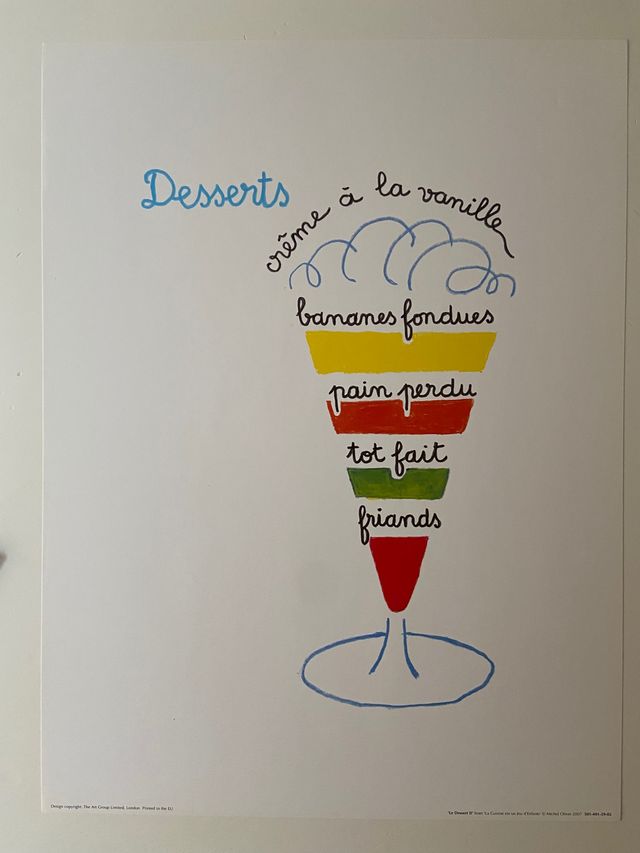 Desserts
crême à la vanille
bananes fondues
pain perdu
tot fait
friands
Design copyright: The Art Group Limited, London. Printed in the EU
'Le Dessert II' from 'La Cuisine est un Jeu d'Enfants' © Michel Oliver 2007